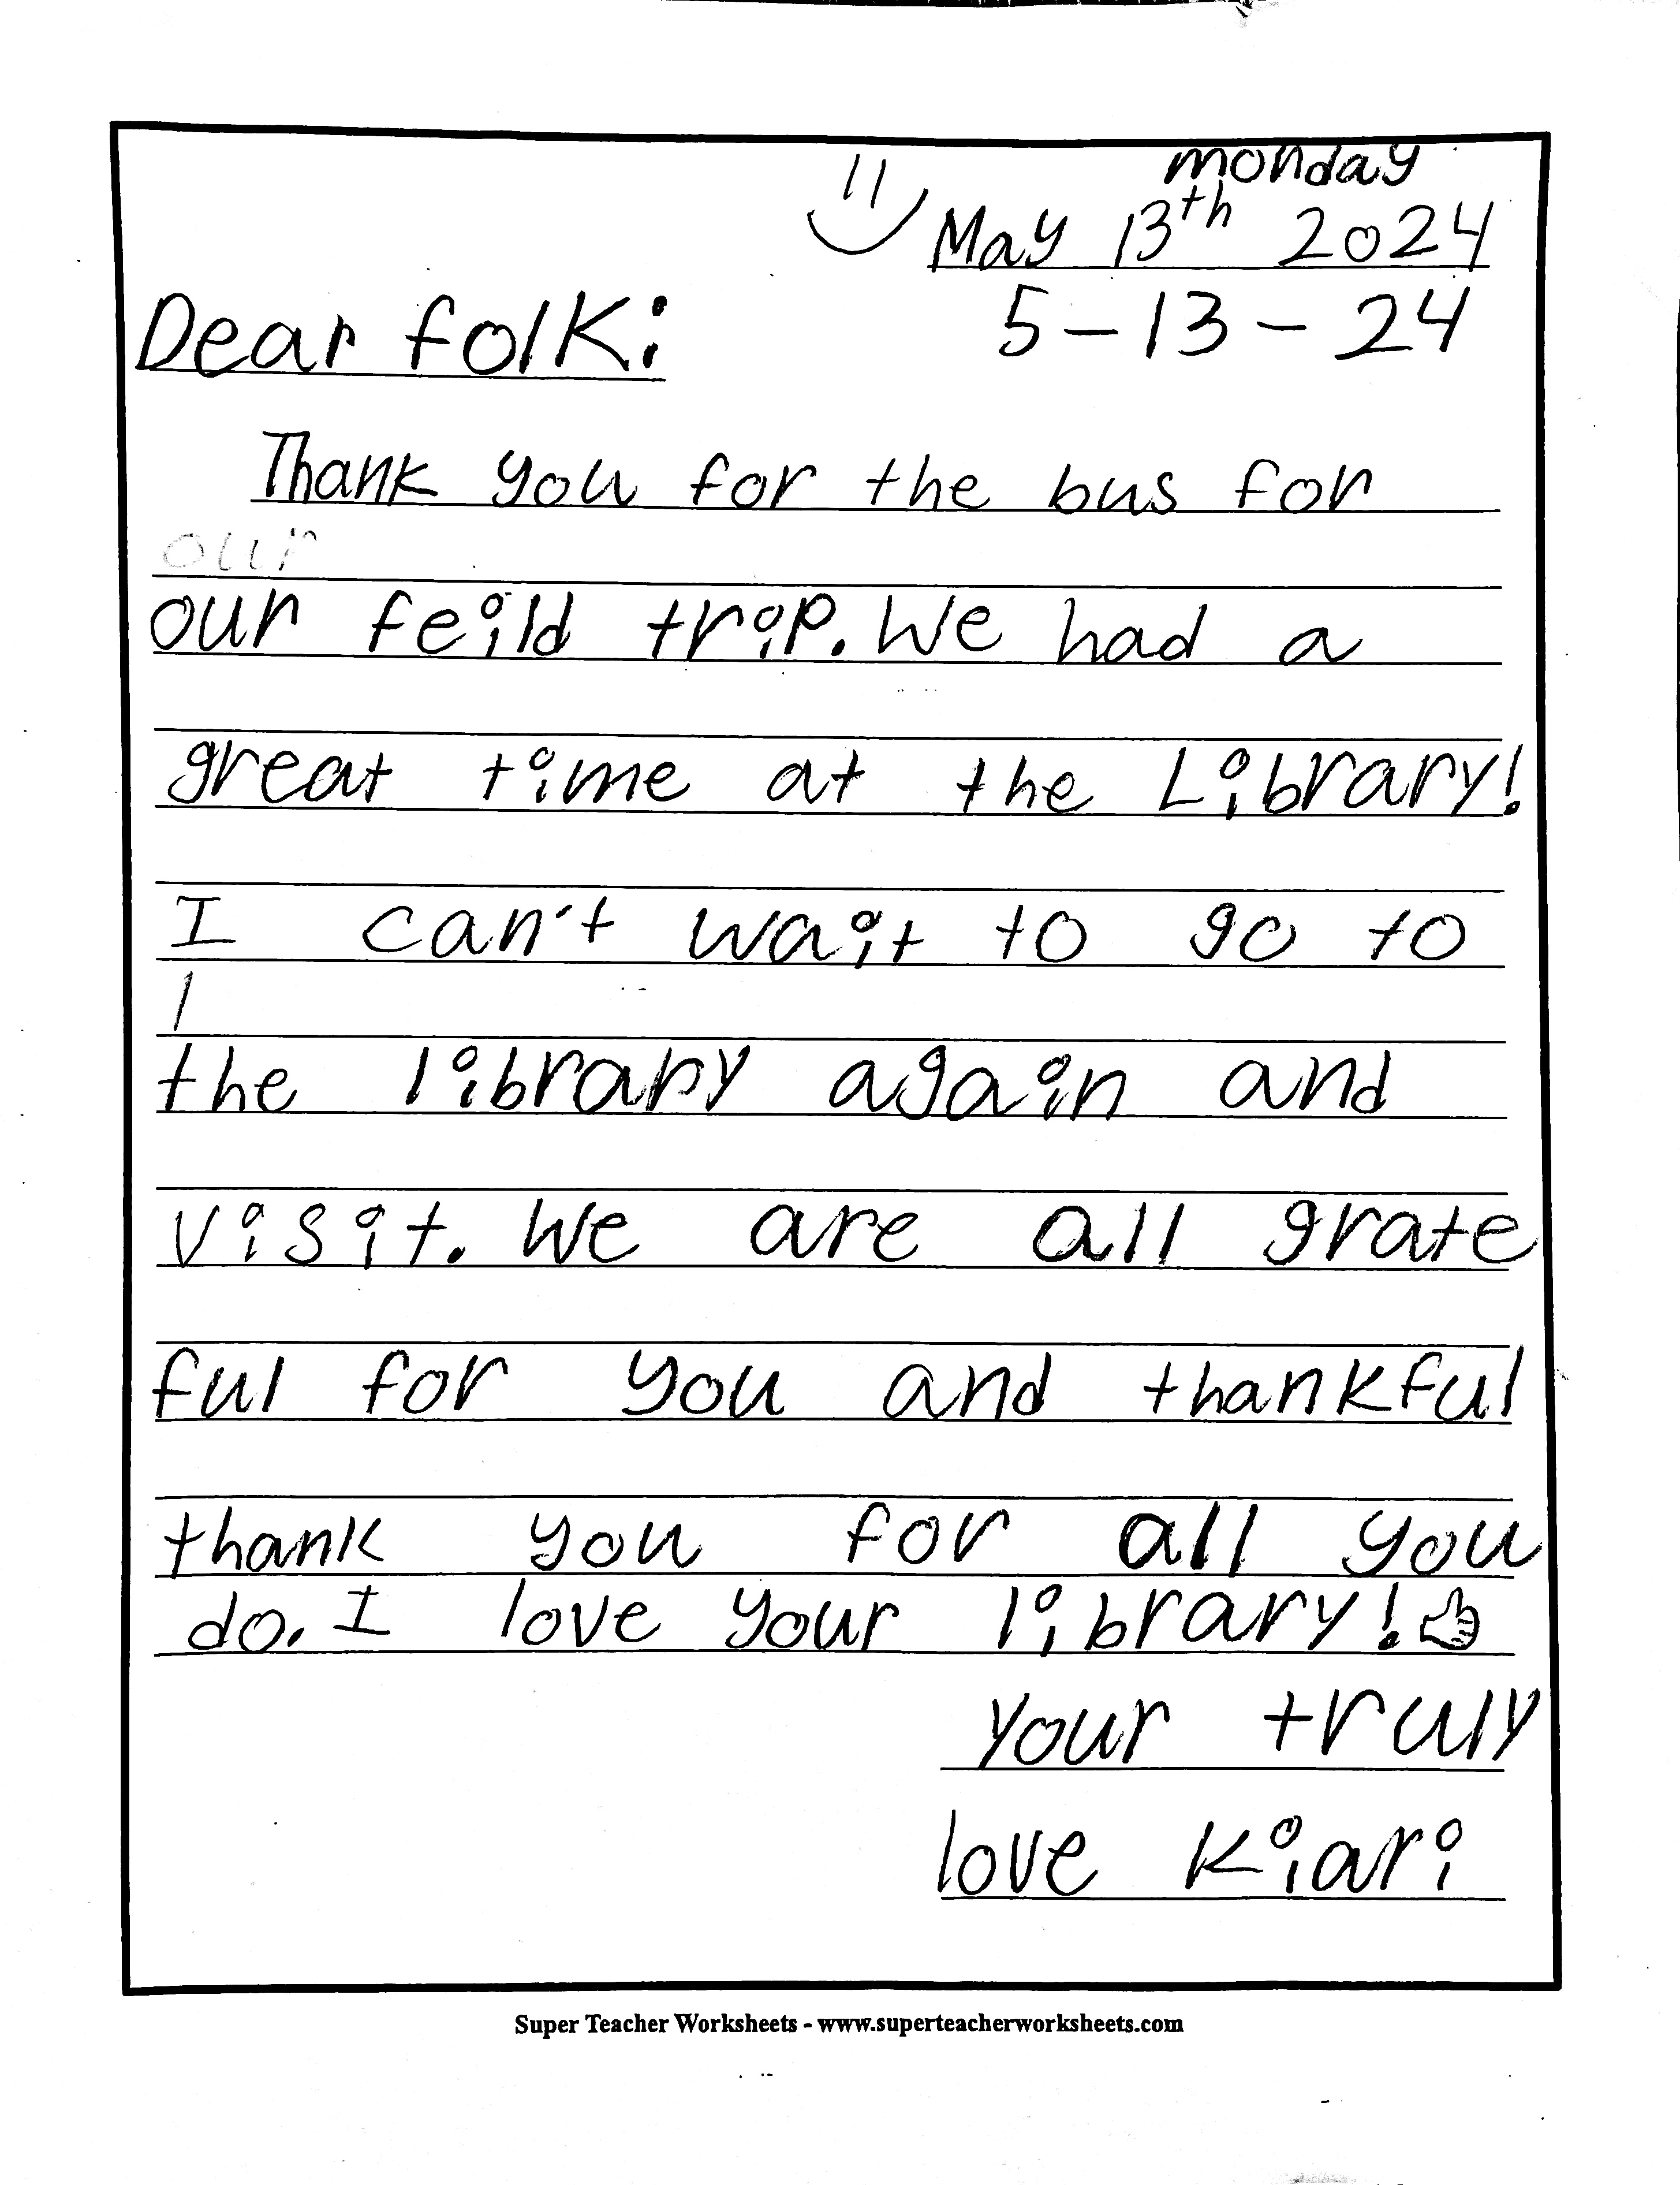 monday
May 13th 2024
5-13-24
Dear folk:
Thank you for the bus for
our
our feild trip. We had a
great time at the Library!
I can't wait to go to
l
the library again and
visit. We are all grate
ful for you and thankful
thank you for all you
do. I love your library!
your truly
love Kiari
Super Teacher Worksheets - www.superteacherworksheets.com